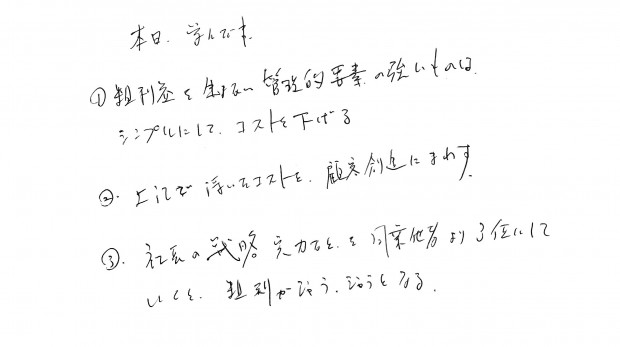 本日、学んだ事
① 粗利益を生まない管理的要素の強いものは、
シンプルにして、コストを下げる
② 上記で浮いたコストを、顧客創造にまわす
③ 社長の戦略実力を同業他者より3倍にして
いくと、粗利が